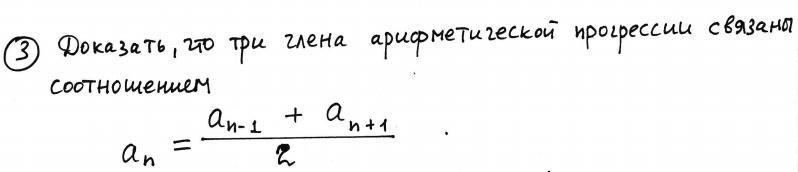 ③ Доказать, что три члена арифметической прогрессии связаны
соотношением
aₙ = (aₙ₋₁ + aₙ₊₁) / 2 .